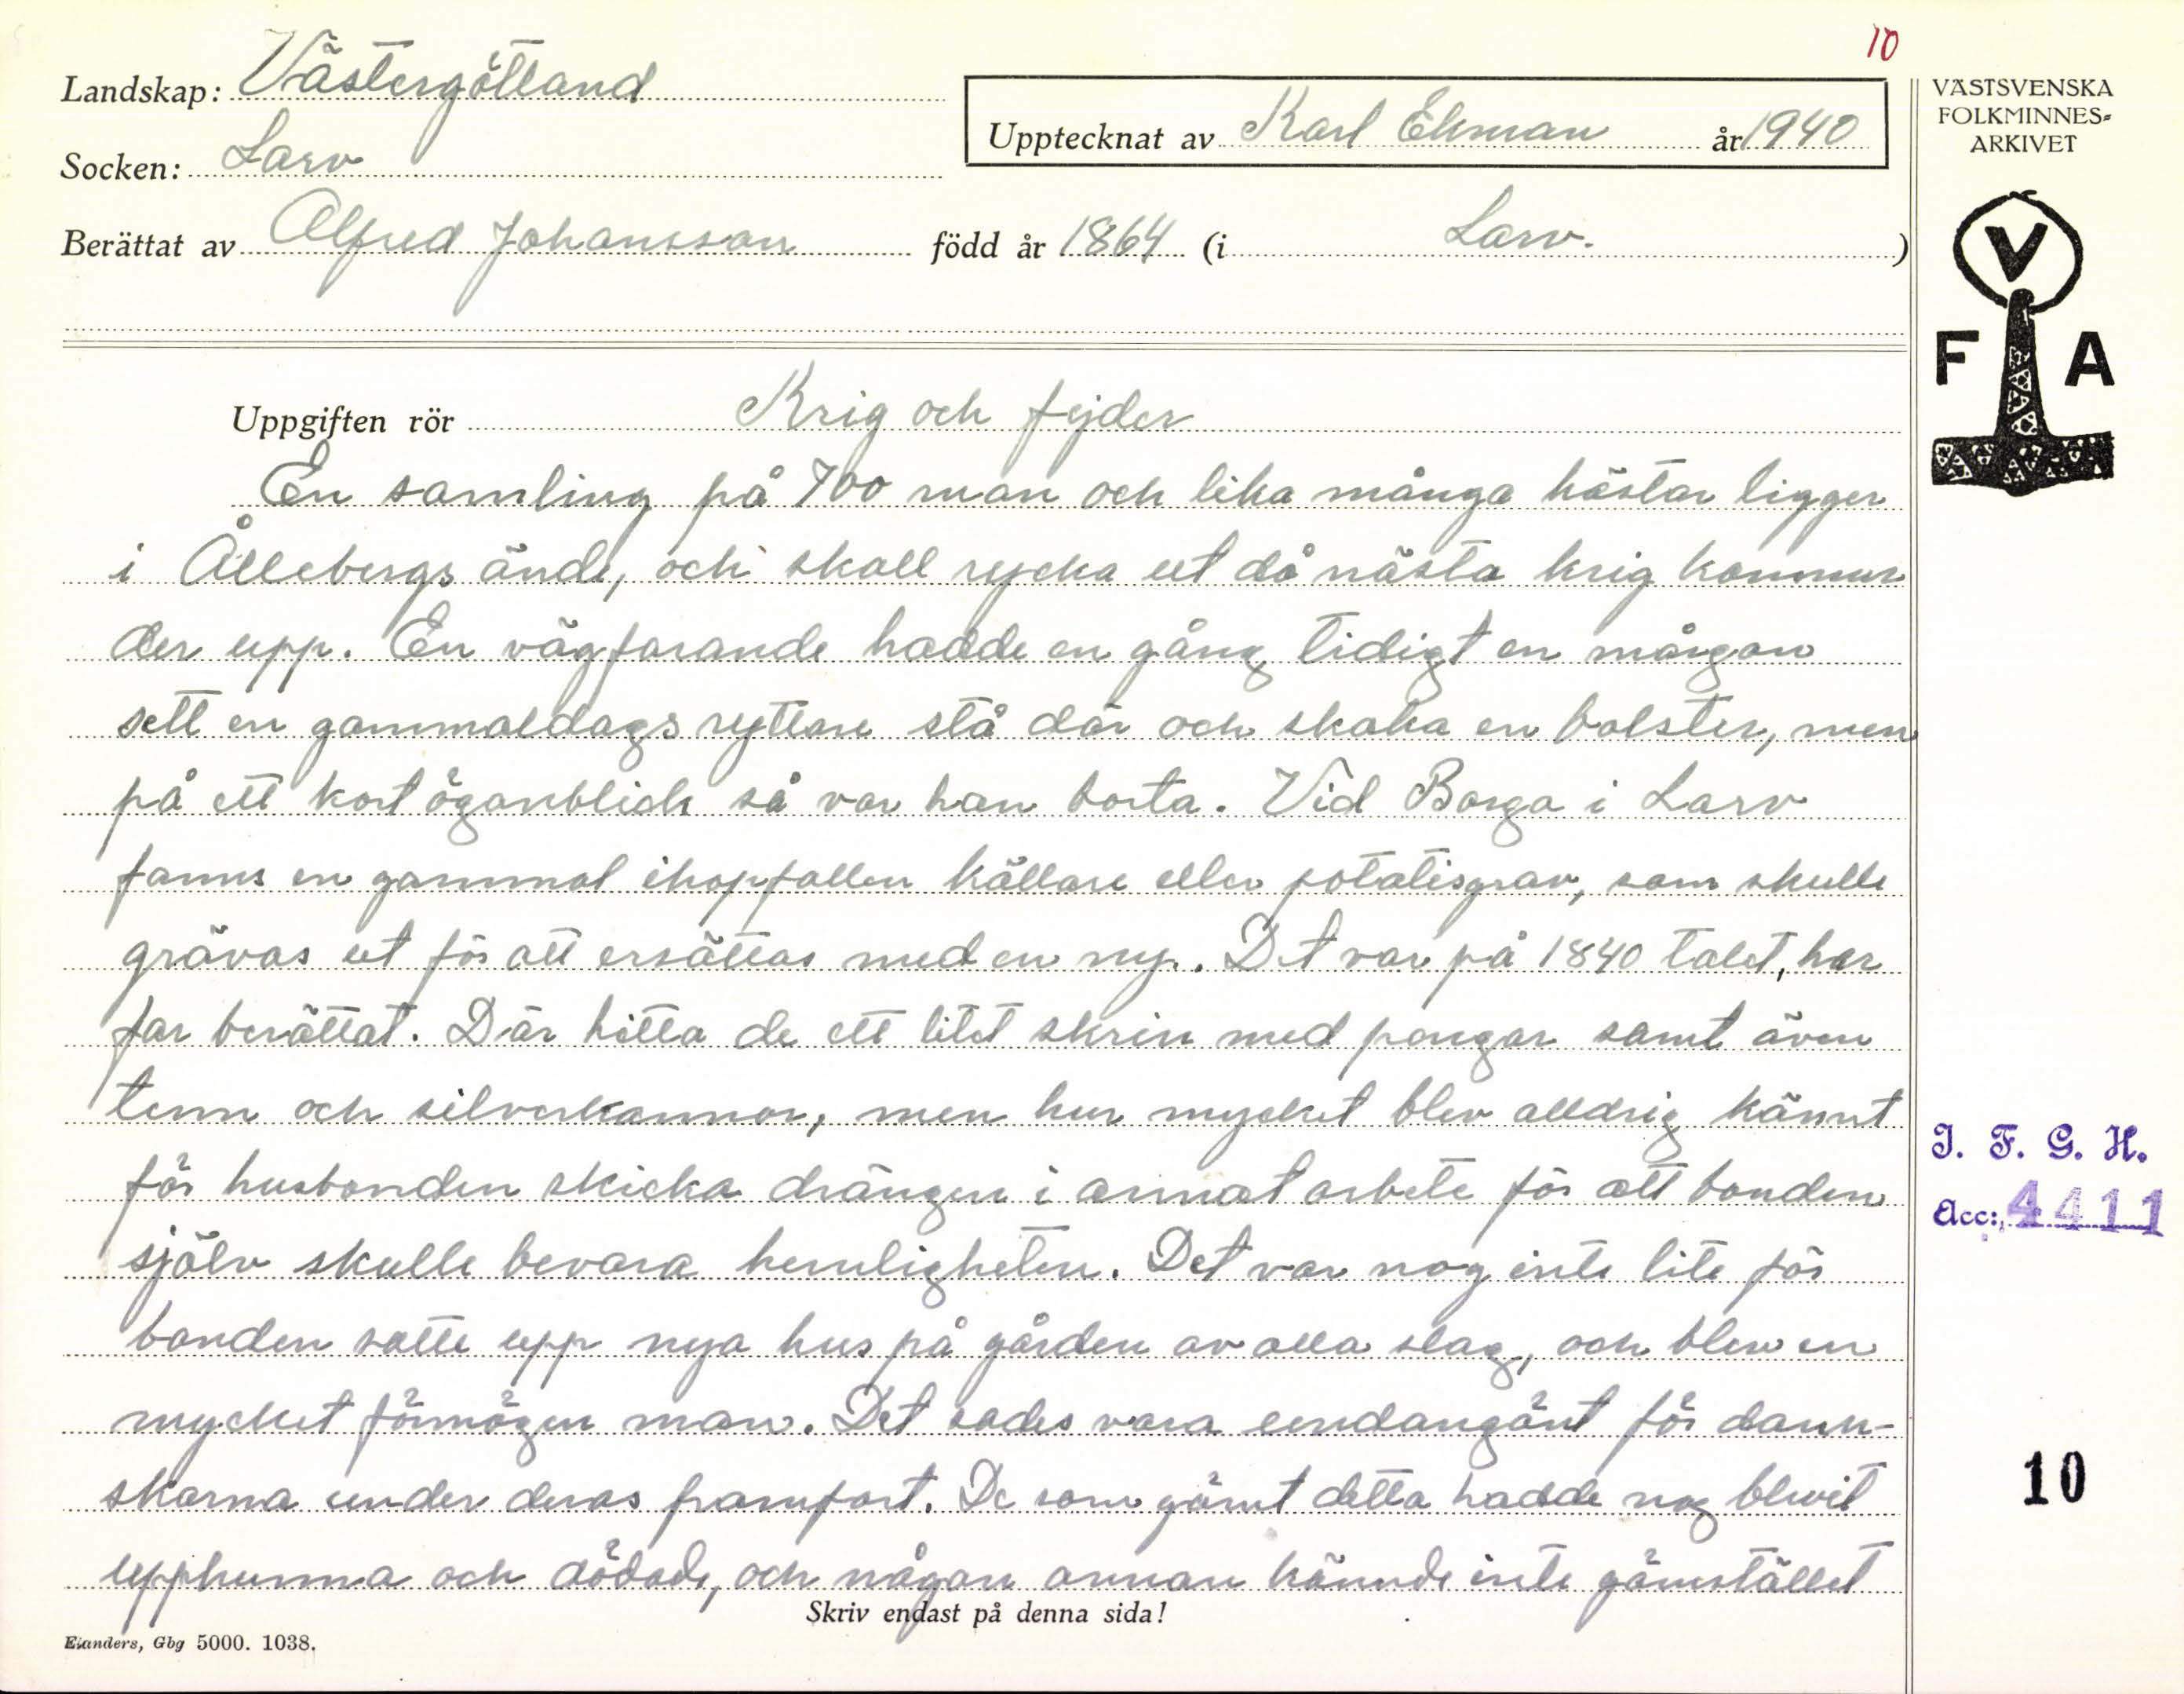 10
Landskap: Västergötland
Socken: Larv
Upptecknat av Karl Ekman år 1940
Berättat av Alfred Johansson född år 1864 (i Larv.)
VÄSTSVENSKA
FOLKMINNES=
ARKIVET
V
F A
Uppgiften rör Krig och fejder
En samling på 700 man och lika många hästar ligger
i Ållebergs ände, och skall rycka ut då nästa krig kommer
der upp. En vägfarande hadde en gång tidigt en mårgon
sett en gammaldags ryttare stå där och skaka en bolster, men
på ett kort öganblick så var han borta. Vid Borga i Larv
fanns en gammal ihopfallen källare eller potatisgrav, som skulle
grävas ut för att ersättas med en ny. Det var på 1840 talet, har
far berättat. Där hitta de ett litet skrin med pengar samt även
tenn och silverkannor, men hur mycket blev alldrig kännt
för husbonden skicka drängen i annat arbete för att bonden
själv skulle bevara hemligheten. Det var nog inte lite för
bonden satte upp nya hus på gården av alla slag, och blev en
mycket förmögen man. Det sades vara undangömt för dann-
skarna under deras framfart. De som gömt detta hadde nog blivit
upphunna och dödade, och någon annan kännde inte gömstället
Skriv endast på denna sida!
Elanders, Gbg 5000. 1038.
I. F. G. H.
Acc: 4411
10